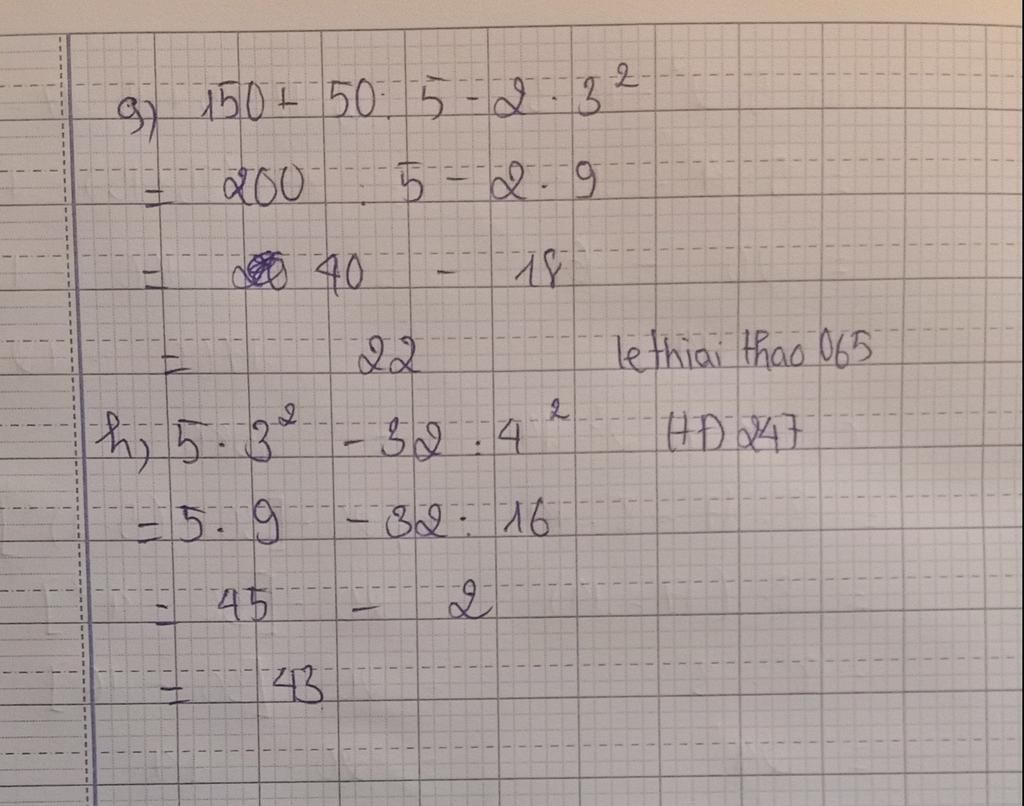 g) 150 + 50 : 5 - 2 . 3²
= 200 : 5 - 2 . 9
= 40 - 18
= 22
lethiai thao 065
h, 5 . 3² - 32 : 4²
= 5 . 9 - 32 : 16
= 45 - 2
= 43